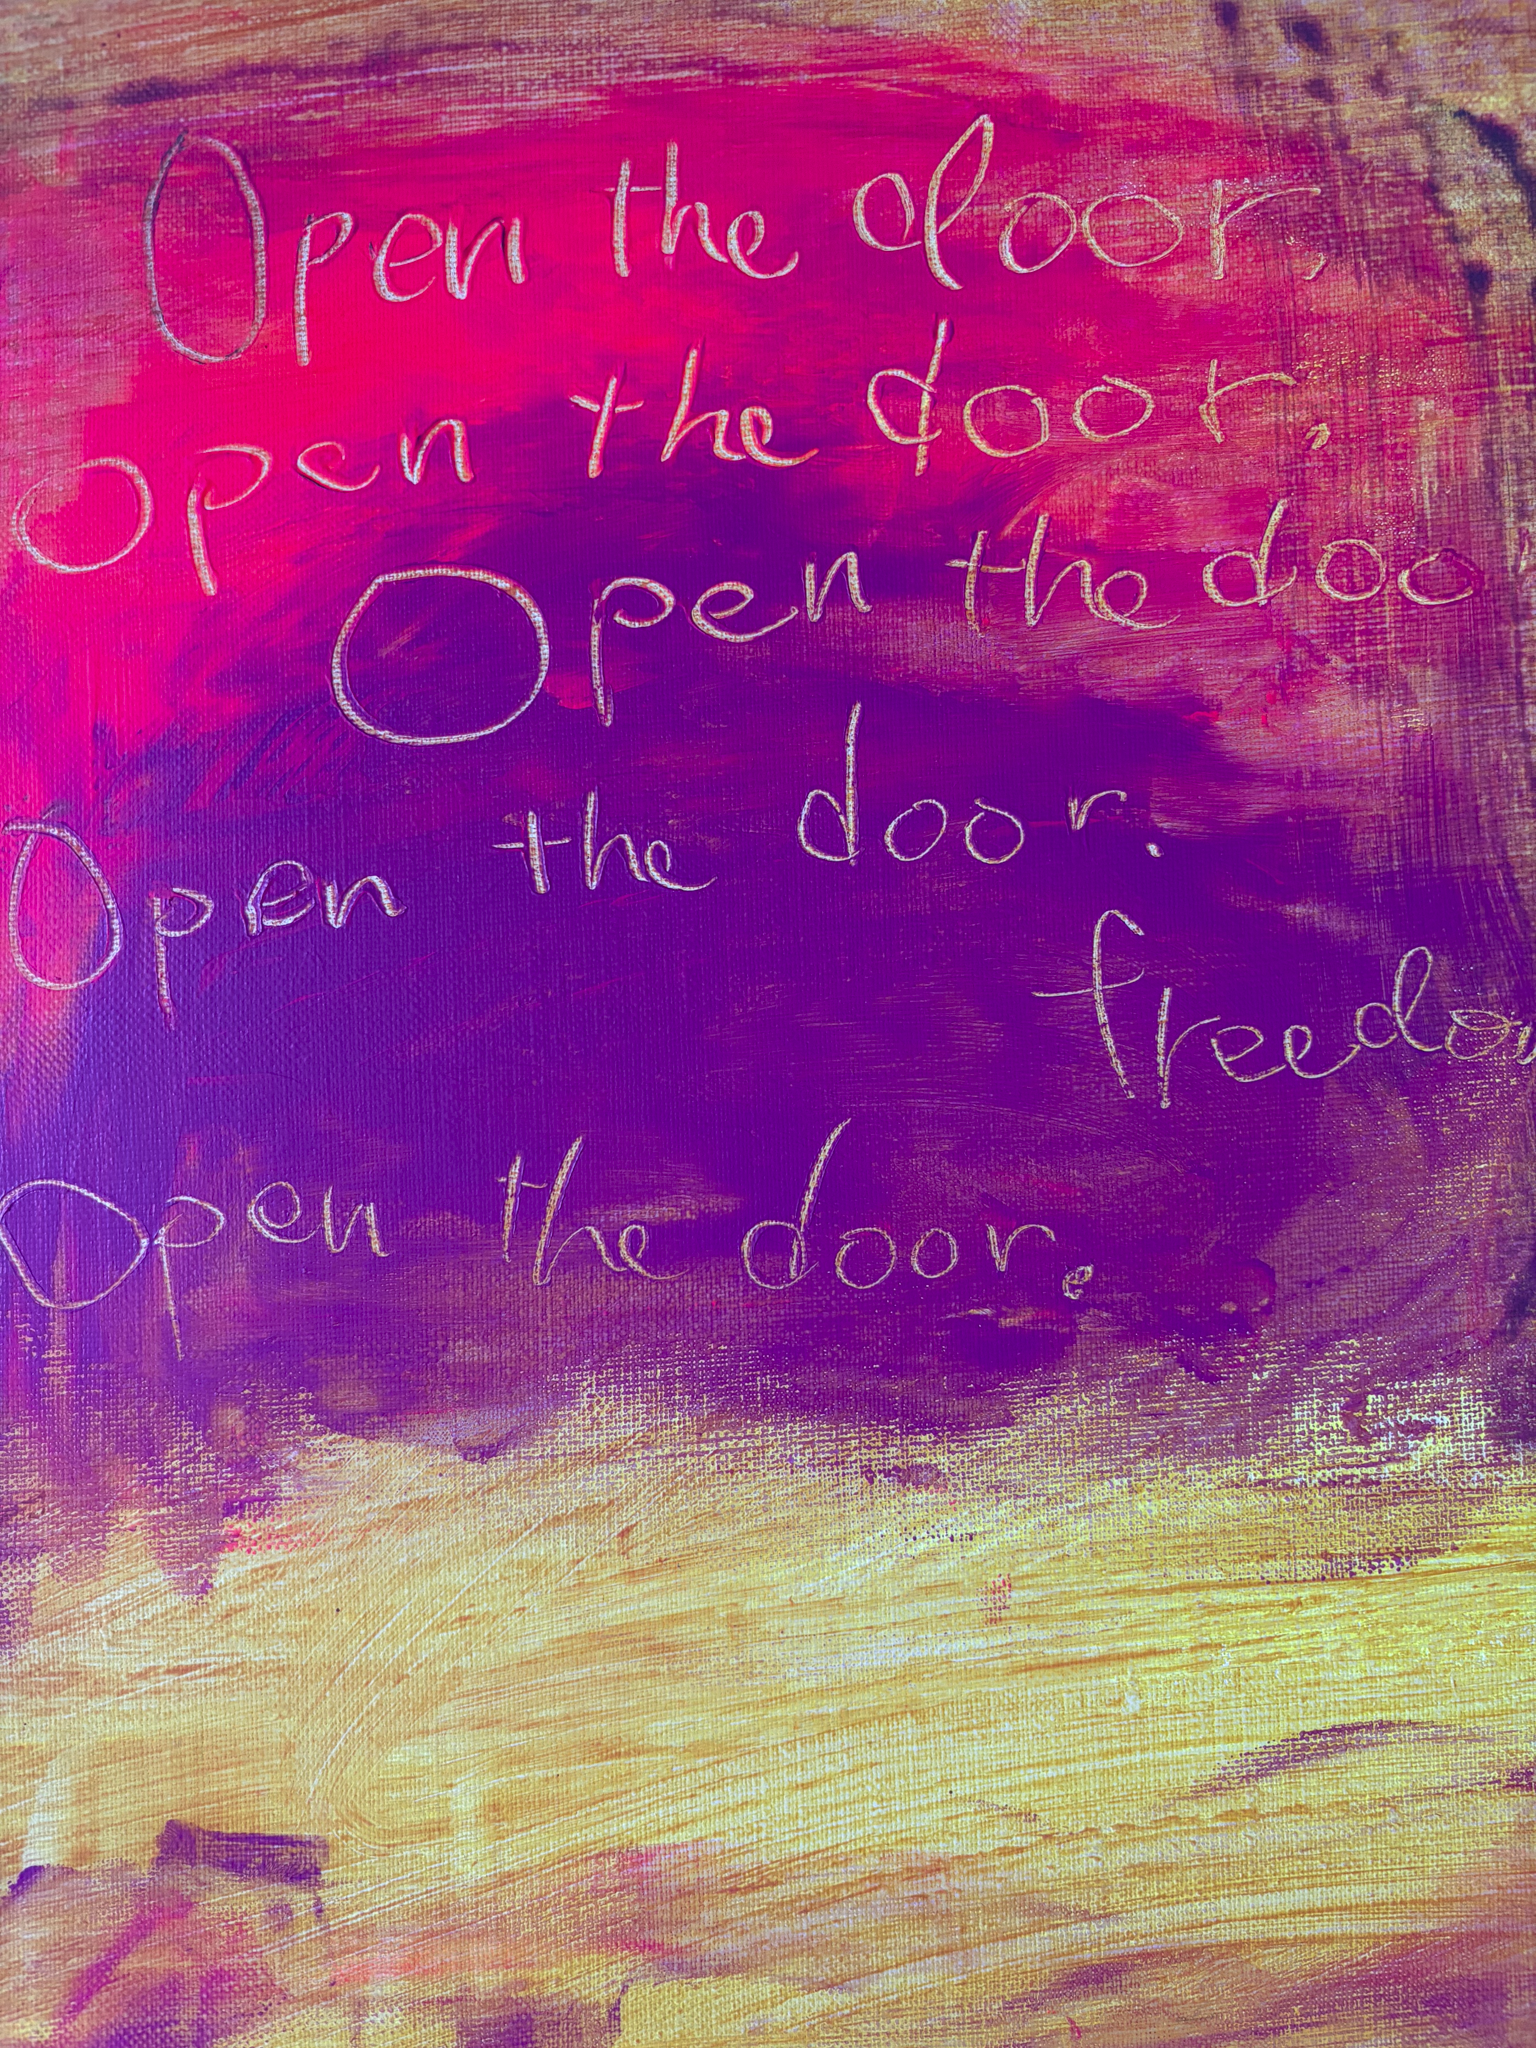 Open the door,
Open the door,
Open the doo
Open the door.
freedom
Open the door.